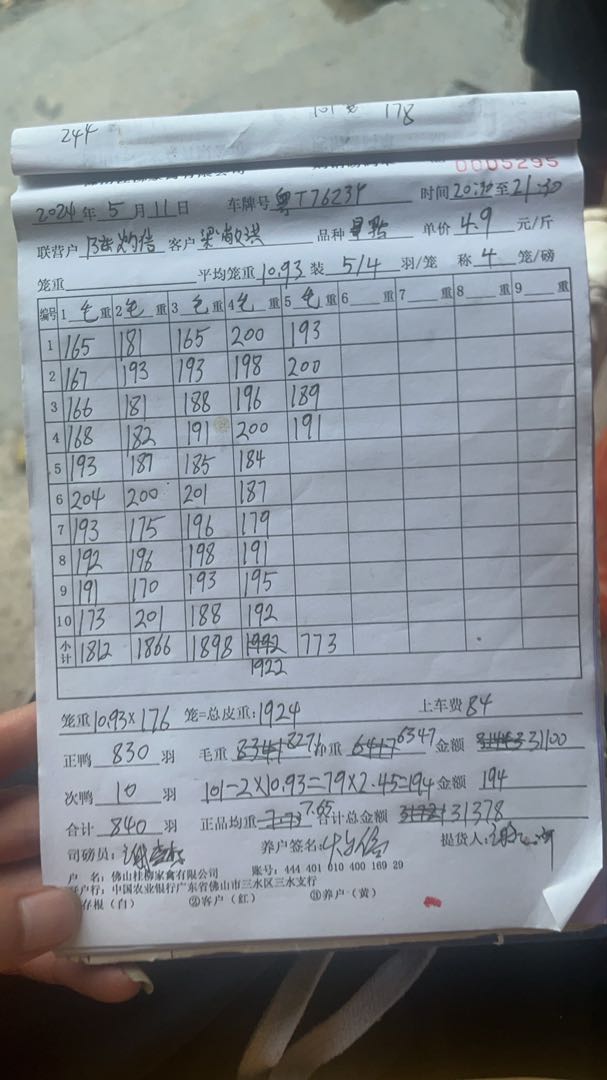 244 178
0005295
2024年5月11日 车牌号 粤T76234 时间20:30至21:30
联营户 客户 品种 单价 4.9 元/斤
笼重 平均笼重10.93 装 5/4 羽/笼 称 4 笼/磅
编号 1 毛重 2 毛重 3 毛重 4 毛重 5 毛重 6 重 7 重 8 重 9 重
1 165 181 165 200 193
2 167 193 193 198 200
3 166 181 188 196 189
4 168 182 191 200 191
5 193 187 185 184
6 204 200 201 187
7 193 175 196 179
8 192 196 198 191
9 191 170 193 195
10 173 201 188 192
小计 1812 1866 1898 1992 773
1922
笼重10.93×176 笼=总皮重:1924 上车费84
正鸭 830 羽 毛重 8341 8271 净重 6417 6347 金额 31100
次鸭 10 羽 101-2×10.93=79×2.45=194 金额 194
合计 840 羽 正品均重 7.65 合计总金额 31378
司磅员: 养户签名: 提货人:
户 名:佛山桂柳家禽有限公司 账号:444 401 010 400 169 29
开户行:中国农业银行广东省佛山市三水区三水支行
存根(白) ②客户(红) ③养户(黄)